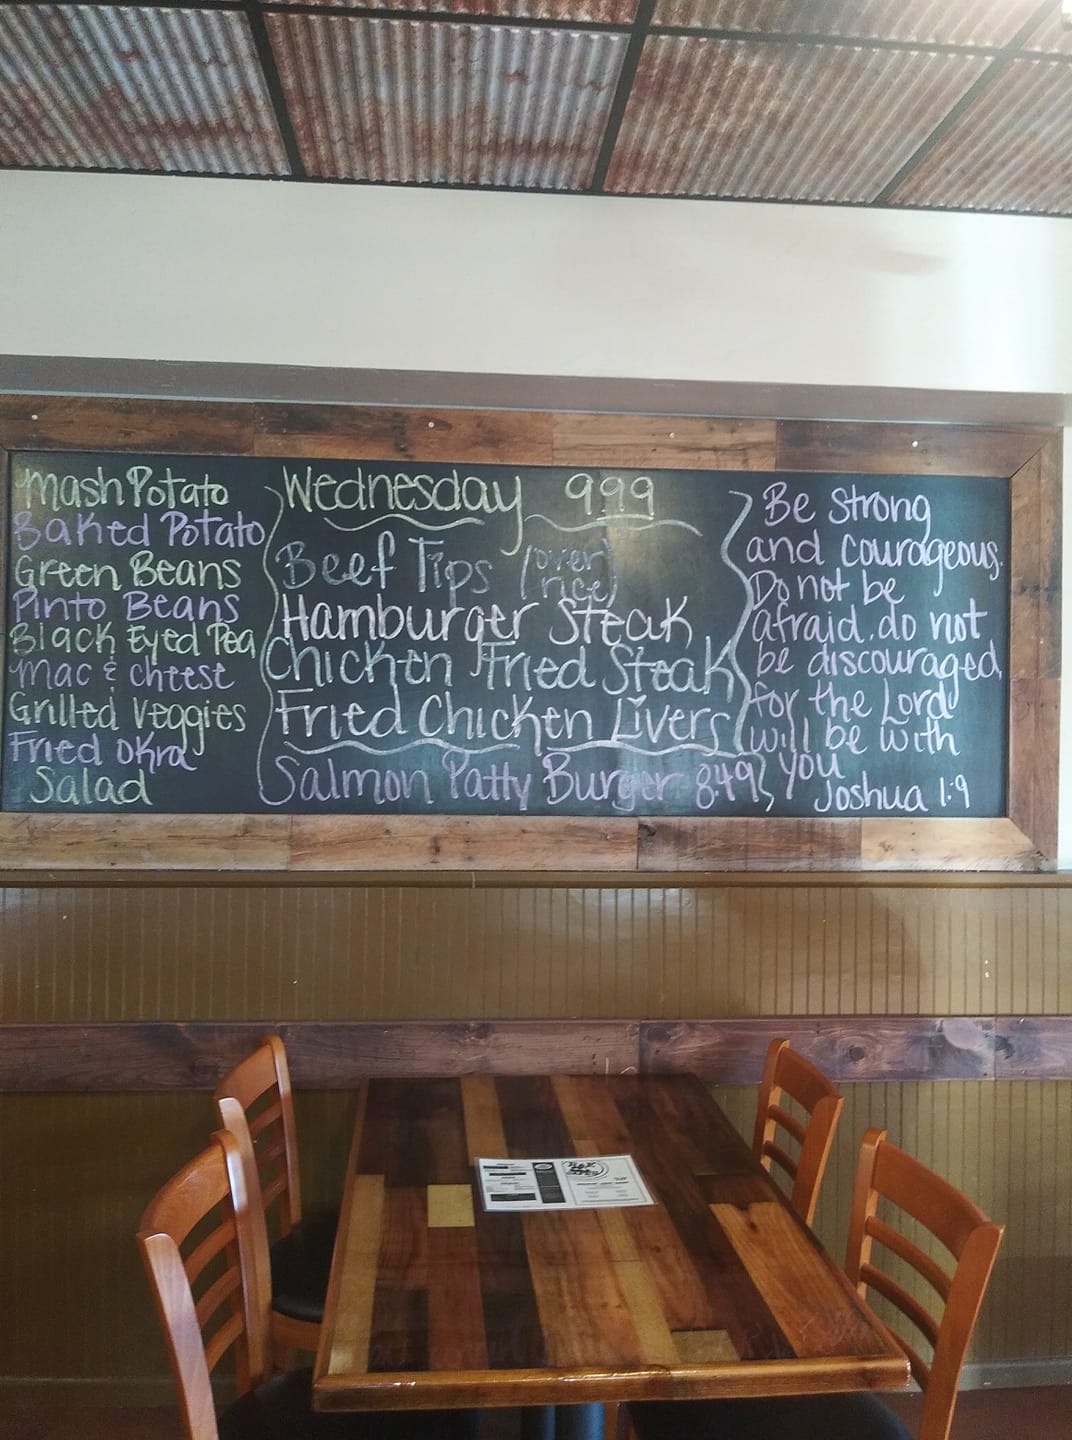 Mash Potato
Baked Potato
Green Beans
Pinto Beans
Black Eyed Pea
Mac & Cheese
Grilled Veggies
Fried Okra
Salad
Wednesday 999
Beef Tips (over rice)
Hamburger Steak
Chicken Fried Steak
Fried Chicken Livers
Salmon Patty Burger 8.49
Be Strong
and courageous.
Do not be
afraid. do not
be discouraged,
for the Lord
will be with
you
Joshua 1:9